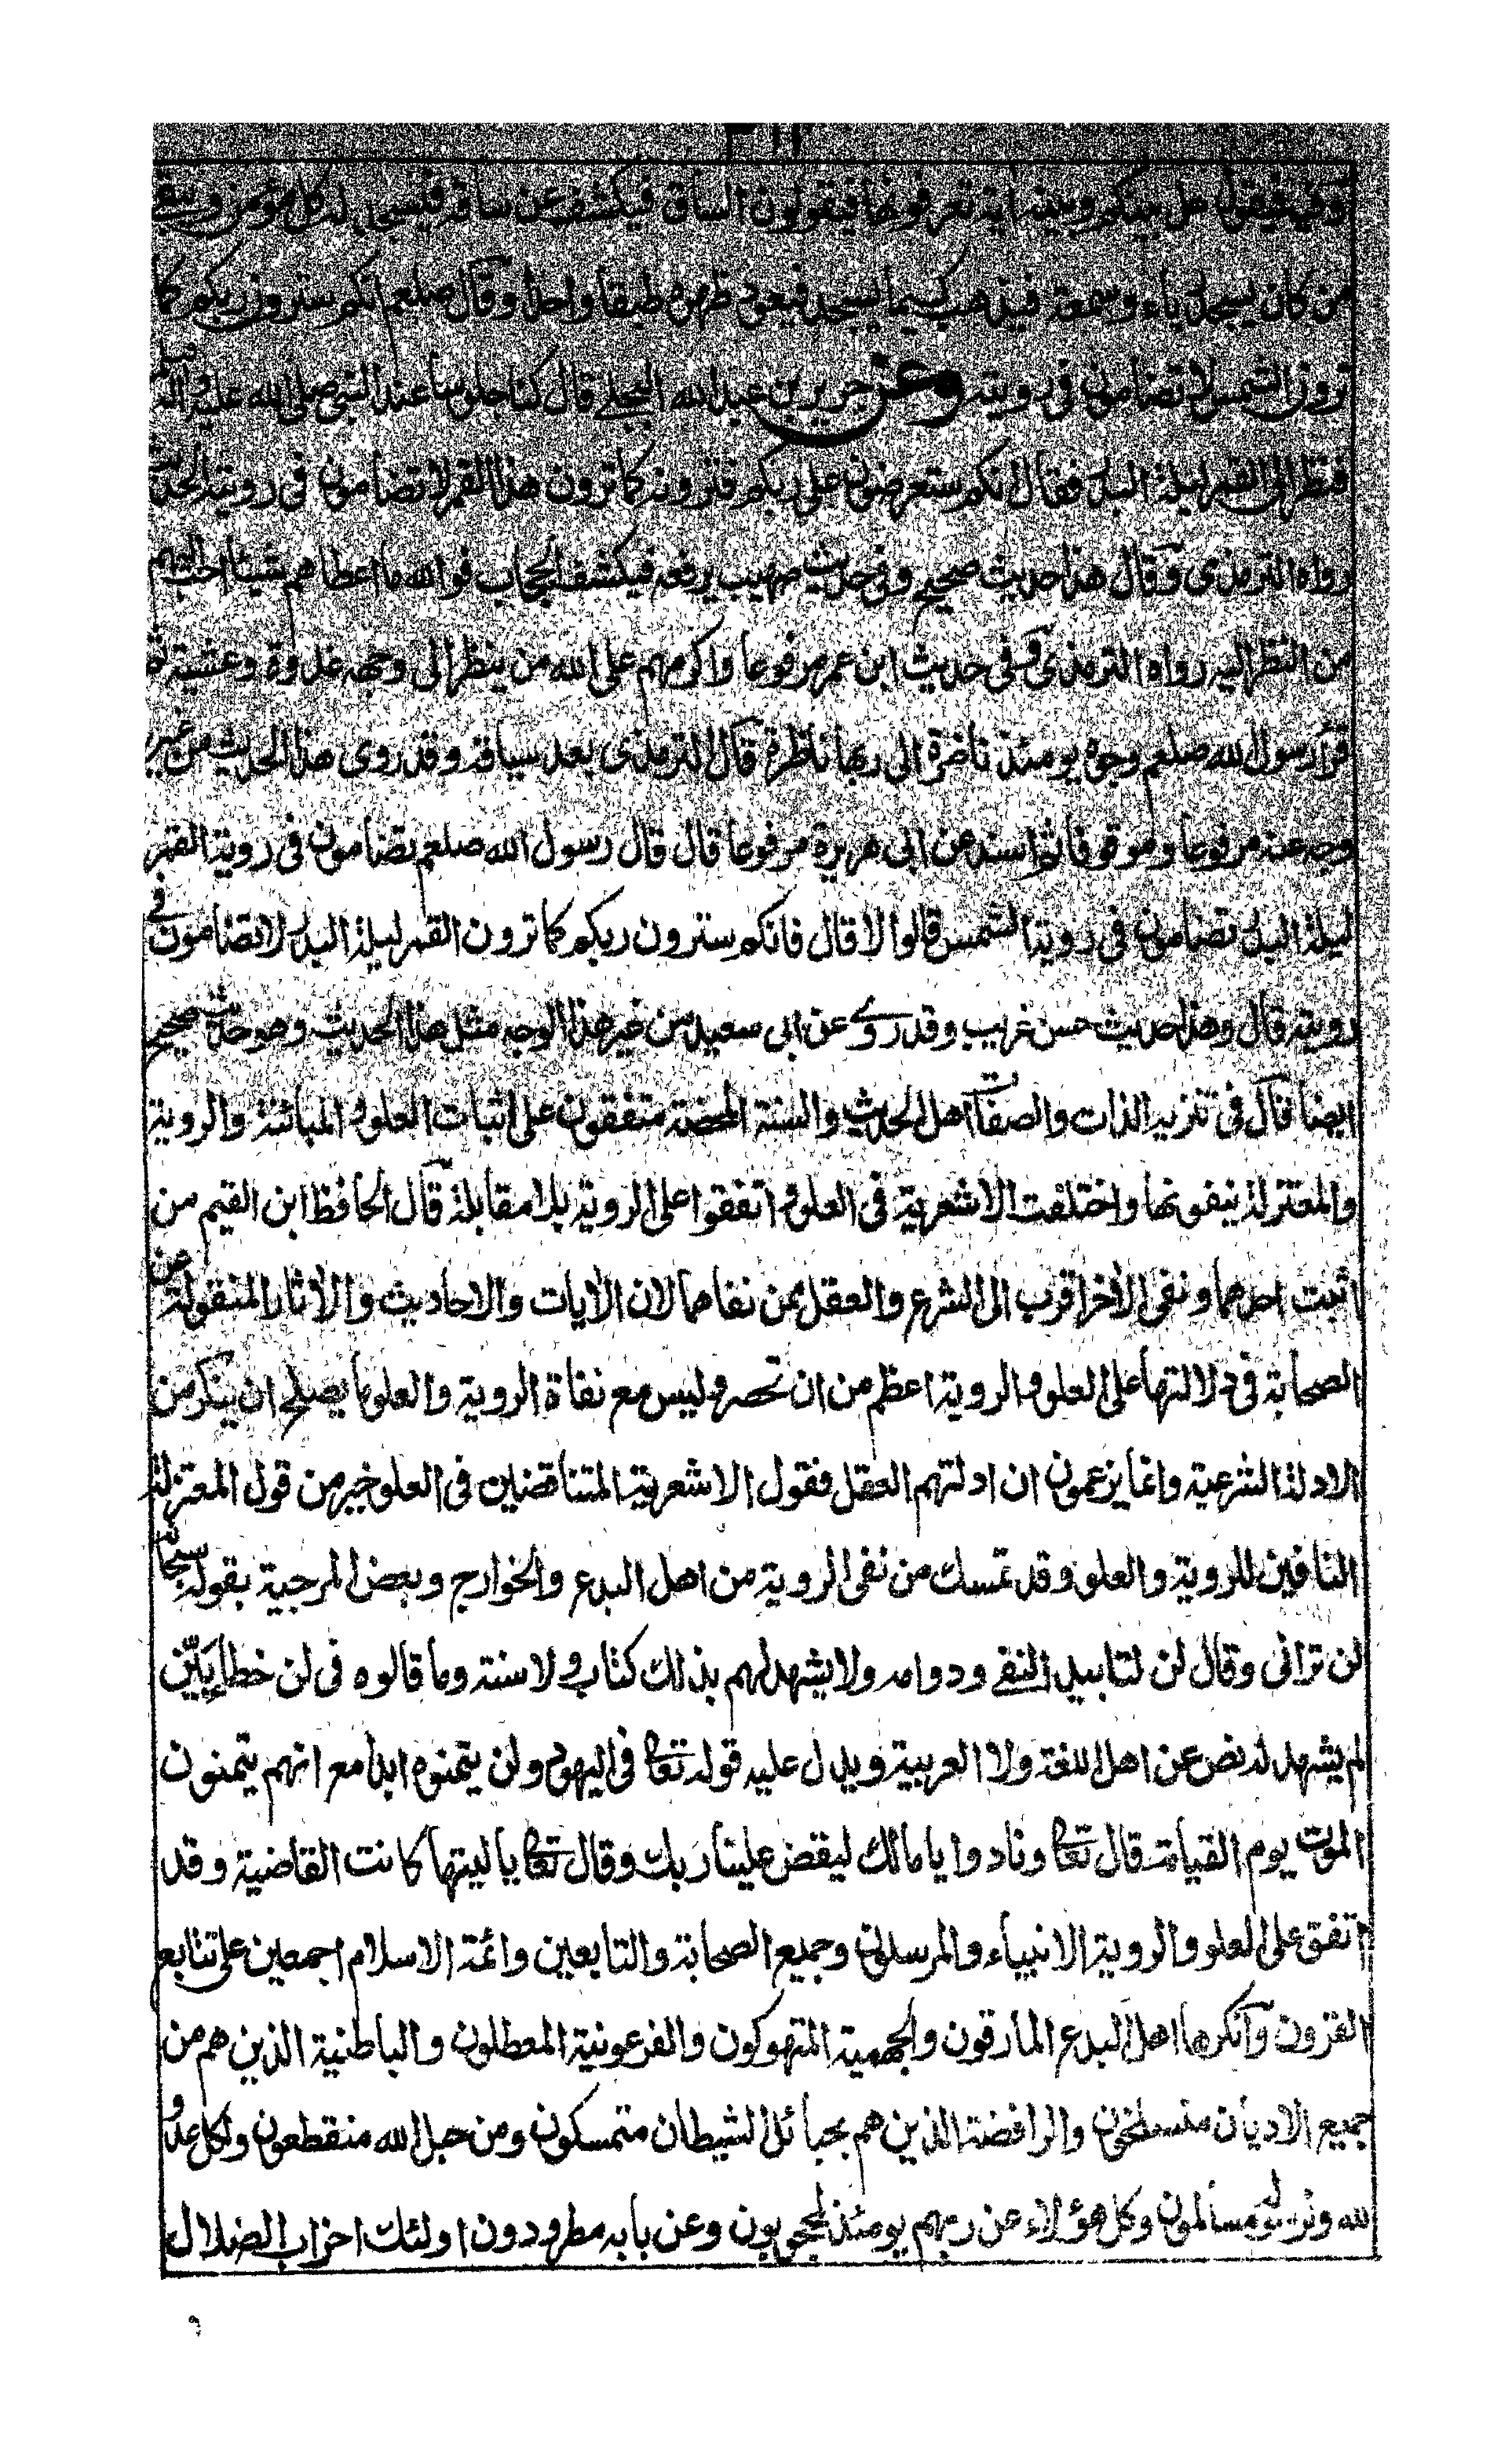 وفيه فيقول هل بينكم وبينه اية تعرفونها فيقولون الساق فيكشف عن ساقه فيسجد له كل مؤمن ويبقى
من كان يسجد رياء وسمعة فيذهب كيما يسجد فيعود ظهره طبقا واحدا وقال صلعم انكم سترون ربكم كما
ترون الشمس لا تضامون فى رويته وعن جرير بن عبد الله البجلے قال كنا جلوسا عند النبى صلى الله عليه واله وسلم
فنظر الى القمر ليلة البدر فقال انكم ستعرضون على ربكم فترونه كما ترون هذا القمر لا تضامون فى رويته الحديث
رواه الترمذى وقال هذا حديث صحيح وفى حديث صهيب يرفعه فيكشف الحجاب فوالله ما اعطاهم شيئا احب اليهم
من النظر اليه رواه الترمذى وفى حديث ابن عمر مرفوعا واكرمهم على الله من ينظر الى وجهه غدوة وعشية ثم
قرأ رسول الله صلعم وجوه يومئذ ناضرة الى ربها ناظرة قال الترمذى بعد سياقه وقد روى هذا الحديث من غير
وجه عنه مرفوعا وموقوفا ثم اسند عن ابى هريرة مرفوعا قال قال رسول الله صلعم تضامون فى روية القمر
ليلة البدر تضامون فى روية الشمس قالوا لا قال فانكم سترون ربكم كما ترون القمر ليلة البدر لا تضامون فى
رويته قال وهذا حديث حسن غريب وقد روے عن ابى سعيد من غير هذا الوجه مثل هذا الحديث وهو حديث صحيح
ايضا قال فى تنزيه الذات والصفات اهل الحديث والسنة المحضة متفقون على اثبات العلو والمبائنة والروية
والمعتزلة ينفونها واختلفت الاشعرية فى العلو واتفقوا على الروية بلا مقابلة قال الحافظ ابن القيم من
اثبت احدهما ونفى الاخر اقرب الى الشرع والعقل ممن نفاهما لان الايات والاحاديث والاثار المنقولة عن
الصحابة فى دلالتها على العلو والروية اعظم من ان تحصر وليس مع نفاة الروية والعلو ما يصلح ان يذكر من
الادلة الشرعية وانما يزعمون ان ادلتهم العقل فقول الاشعرية المتناقضين فى العلو خير من قول المعتزلة
النافين للروية والعلو وقد تمسك من نفى الروية من اهل البدع والخوارج وبعض المرجية بقوله سبحانه
لن ترانى وقال لن لتابيد النفے ودوامه ولا يشهد لهم بذلك كتاب ولا سنة وما قالوه فى لن خطأ بَيّن
لم يشهد له نص عن اهل اللغة ولا العربية ويدل عليه قوله تعا فى اليهود ولن يتمنوه ابدا مع انهم يتمنون
الموت يوم القيامة قال تعا ونادوا يا مالك ليقض علينا ربك وقال تعا ياليتها كانت القاضية وقد
اتفق على العلو والروية الانبياء والمرسلون وجميع الصحابة والتابعين وائمة الاسلام اجمعين على تتابع
القرون وانكرها اهل البدع المارقون والجهمية المتهوكون والفرعونية المعطلون والباطنية الذين هم من
جميع الاديان منسلخون والرافضة الذين هم بحبائل الشيطان متمسكون ومن حبل الله منقطعون ولكل عدو
لله ورسوله مسالمون وكل هؤلاء عن ربهم يومئذ لمحجوبون وعن بابه مطرودون اولئك احزاب الضلال